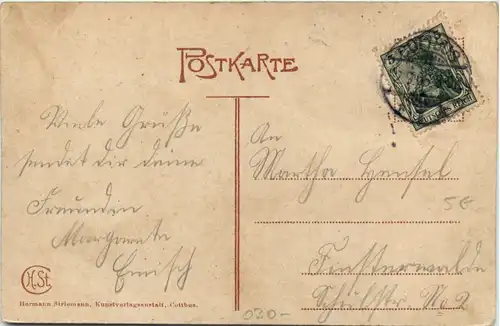 POSTKARTE
Viele Grüße
sendet dir deine
Freundin
Margarete
Einisch
H.St.
Hermann Striemann, Kunstverlagsanstalt, Cottbus.
An
Martha Hensel
Finsterwalde
Schulstr. No 2
5€
030-